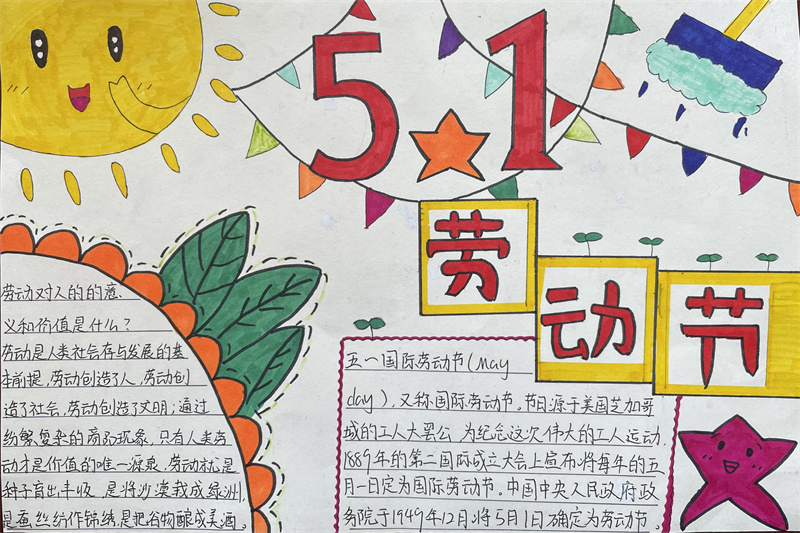 5.1
劳动节
劳动对人的的意
义和价值是什么？
劳动是人类社会存与发展的基
本前提，劳动创造了人，劳动创
造了社会，劳动创造了文明；通过
纷繁复杂的商品现象，只有人类劳
动才是价值的唯一源泉，劳动就是
种子育出丰收，是将沙漠栽成绿洲，
是蚕丝纺作锦绣，是把谷物酿成美酒。
五一国际劳动节（May
day），又称国际劳动节。节日源于美国芝加哥
城的工人大罢公，为纪念这次伟大的工人运动，
1889年的第二国际成立大会上宣布将每年的五
月一日定为国际劳动节。中国中央人民政府政
务院于1949年12月将5月1日确定为劳动节。